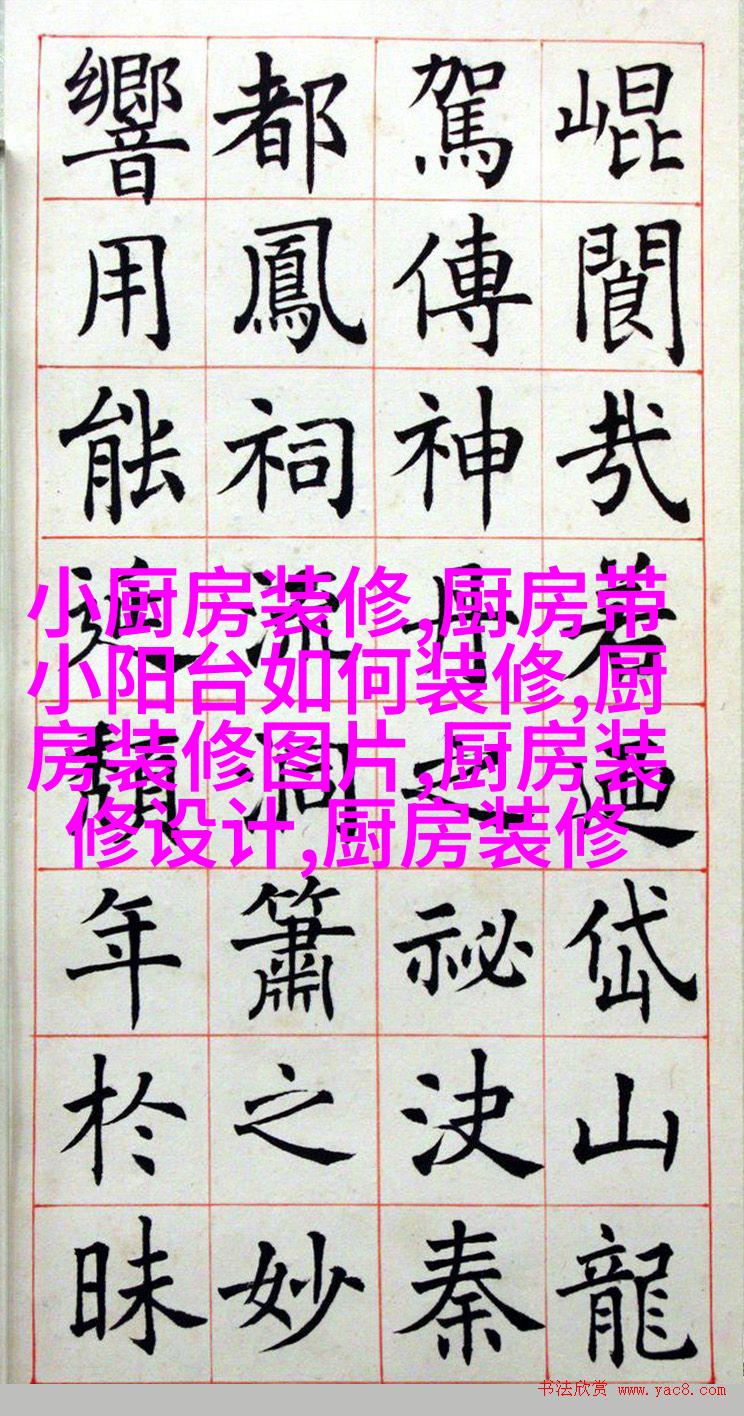 崐閬哉若迺岱山龍
駕傳神丹之祕決秦
都鳳祠流洞簫之妙
響用能頹年於昧
小厨房装修,厨房带
小阳台如何装修,厨
房装修图片,厨房装
修设计,厨房装修
书法欣赏 www.yac8.com